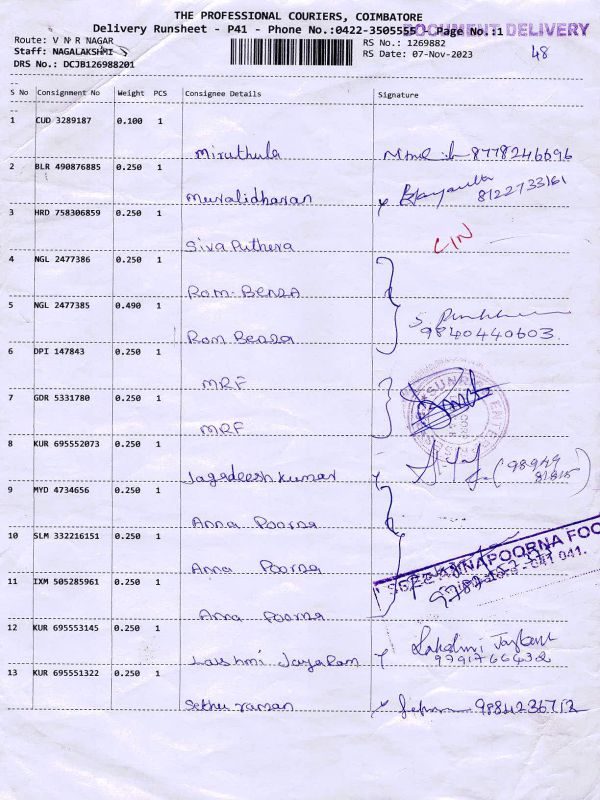 THE PROFESSIONAL COURIERS, COIMBATORE
Delivery Runsheet - P41 - Phone No.:0422-3505555 - Page No.:1
DOCUMENT DELIVERY
Route: V N R NAGAR
RS No.: 1269882
48
Staff: NAGALAKSHMI S
RS Date: 07-Nov-2023
DRS No.: DCJB126988201
S No Consignment No Weight PCS Consignee Details Signature
1 CUD 3289187 0.100 1
Miruthula 8778246696
2 BLR 490876885 0.250 1
Muralidharan 8122733161
3 HRD 758306859 0.250 1
Siva Puthera CIN
4 NGL 2477386 0.250 1
Rom-Bensa
5 NGL 2477385 0.490 1
9840440603
Rom Bensa
6 DPI 147843 0.250 1
MRF
7 GDR 5331780 0.250 1
MRF
8 KUR 695552073 0.250 1
Jagadeesh kumar
9 MYD 4734656 0.250 1
Anna Poorna
10 SLM 332216151 0.250 1
SREE ANNAPOORNA FOO
Anna Poorna
641 041.
11 IXM 505285961 0.250 1
Anna Poorna
12 KUR 695553145 0.250 1
Lakshmi Jayaram
Lakshmi Jayaram
9791766432
13 KUR 695551322 0.250 1
Sethu raman 9884236712